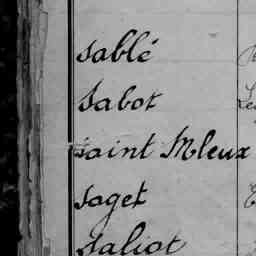 Sablé
Sabot
Saint Mleux
Saget
Saliot